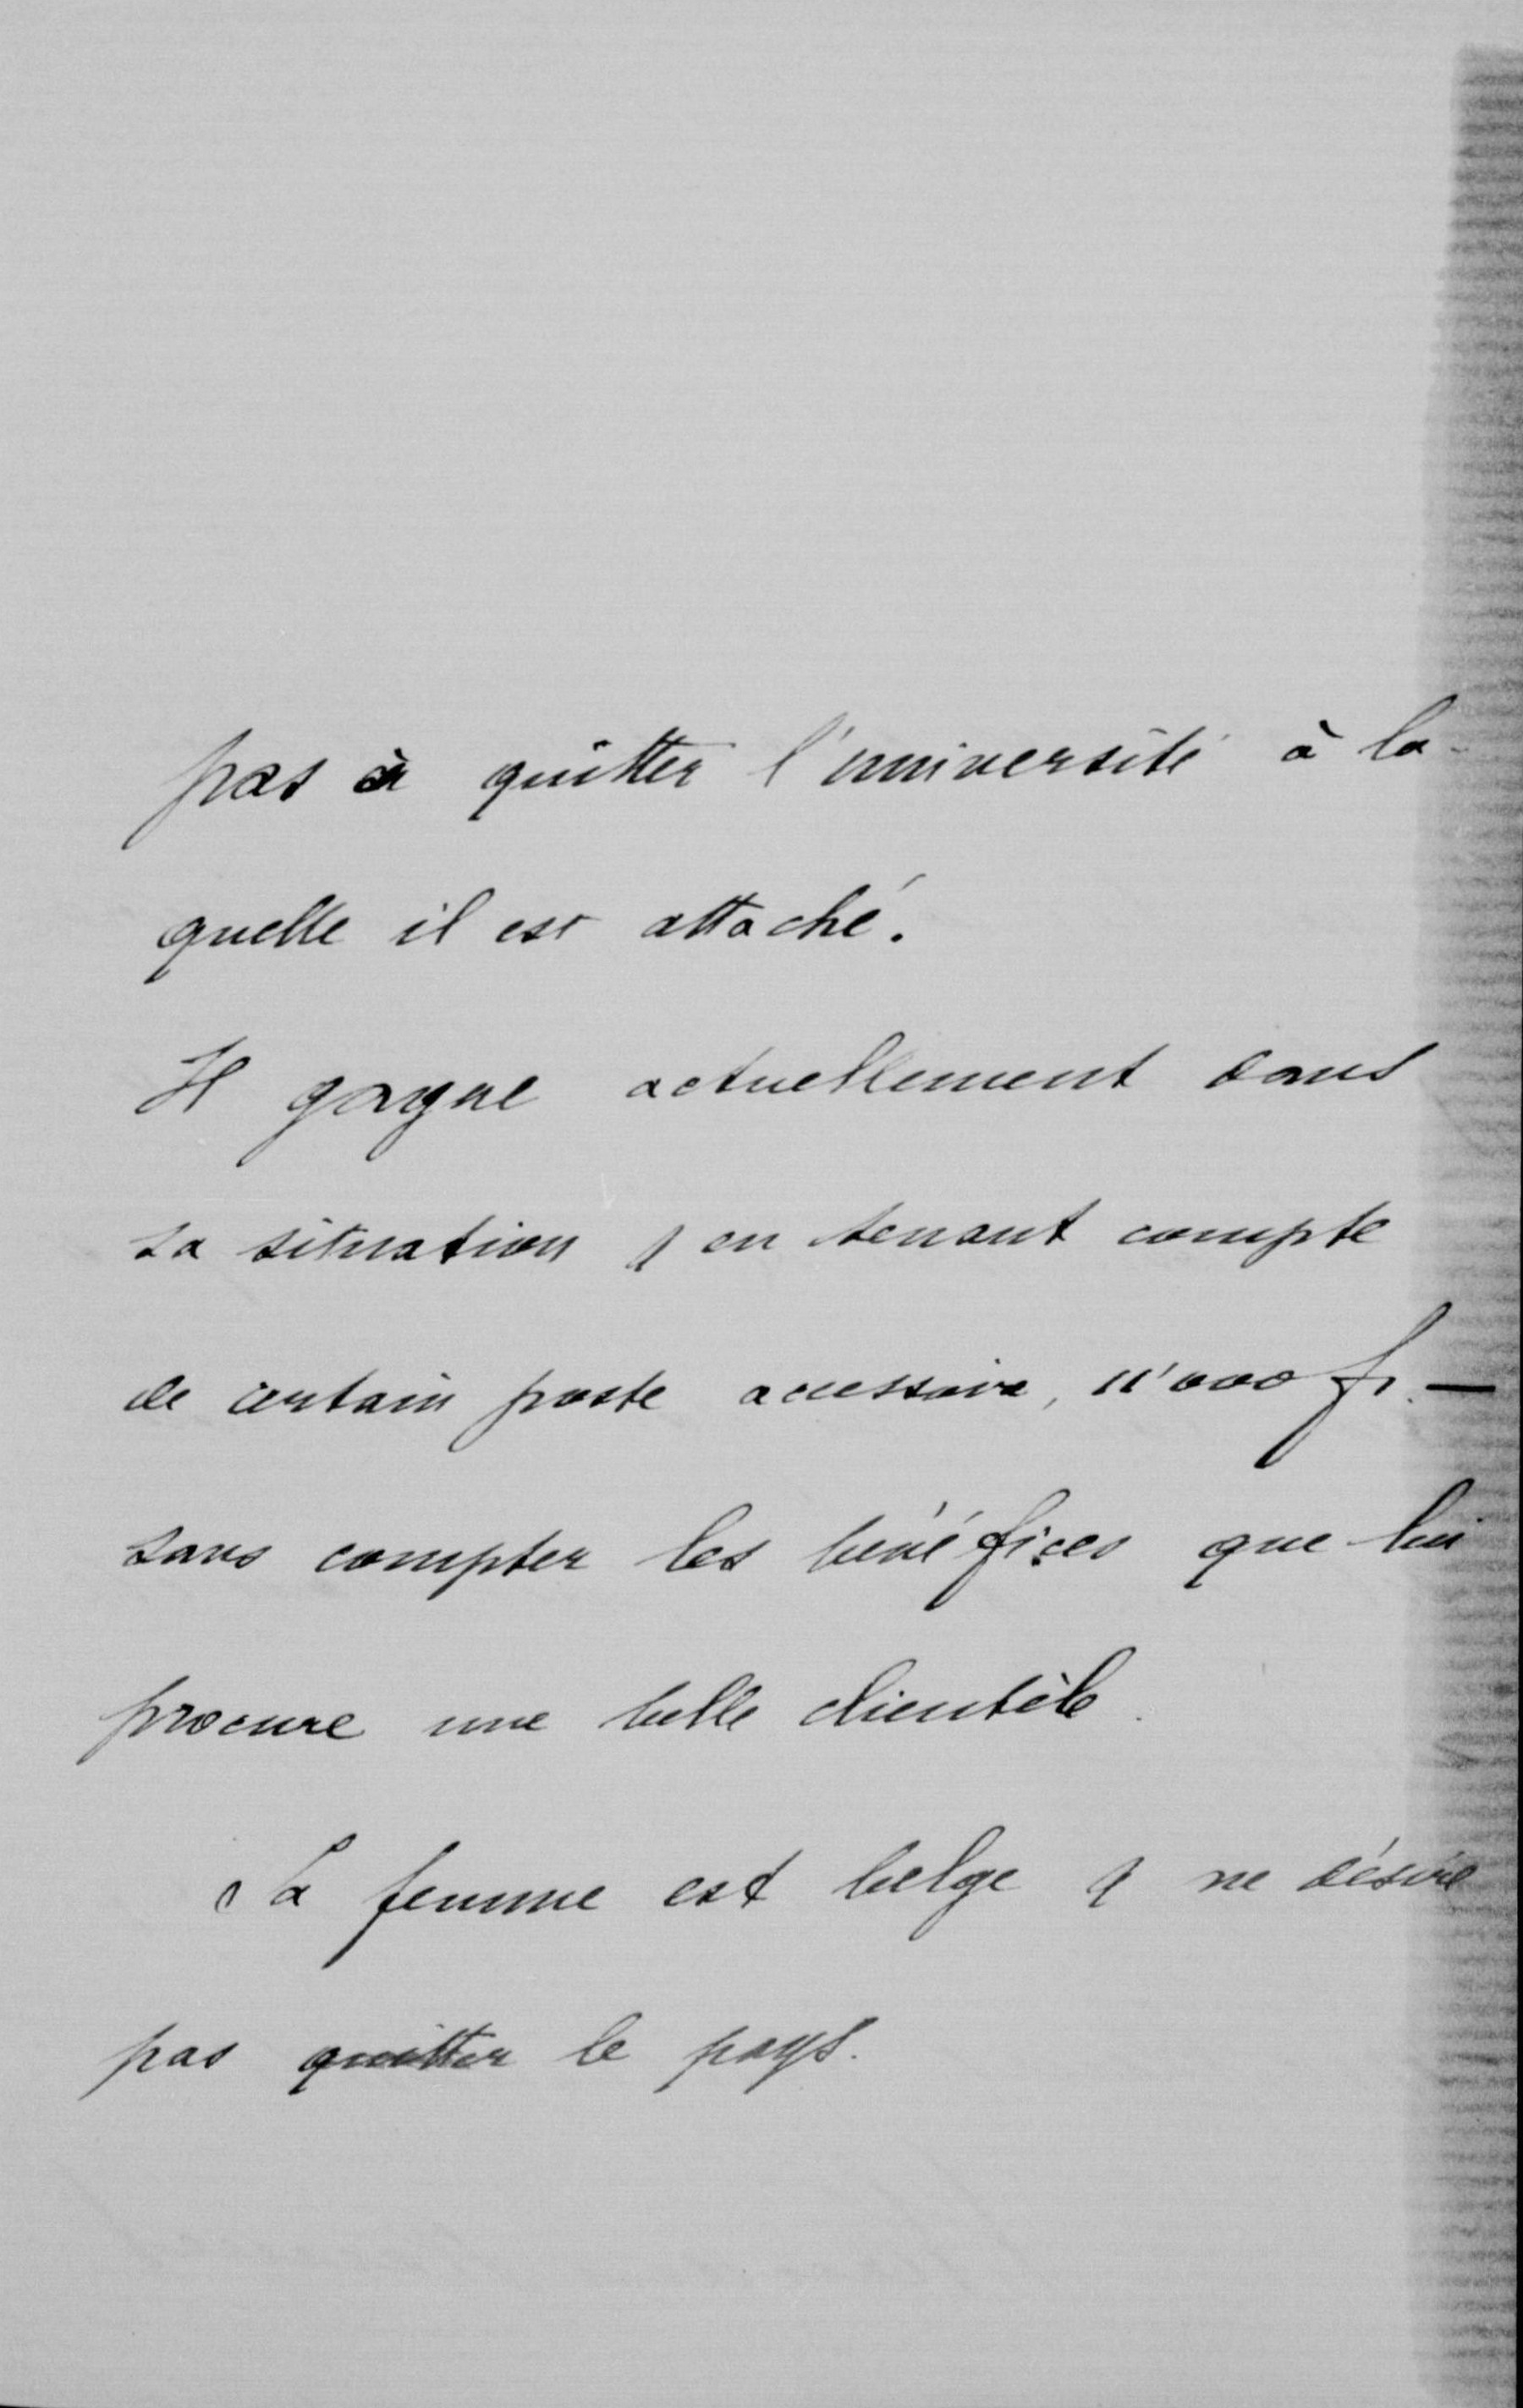 pas à quitter l'université à la-
quelle il est attaché.
Il gagne actuellement dans
sa situation & en tenant compte
de certain poste accessoire, 11'000 fr. —
sans compter les bénéfices que lui
procure une belle clientèle.
Sa femme est belge & ne désire
pas quitter le pays.